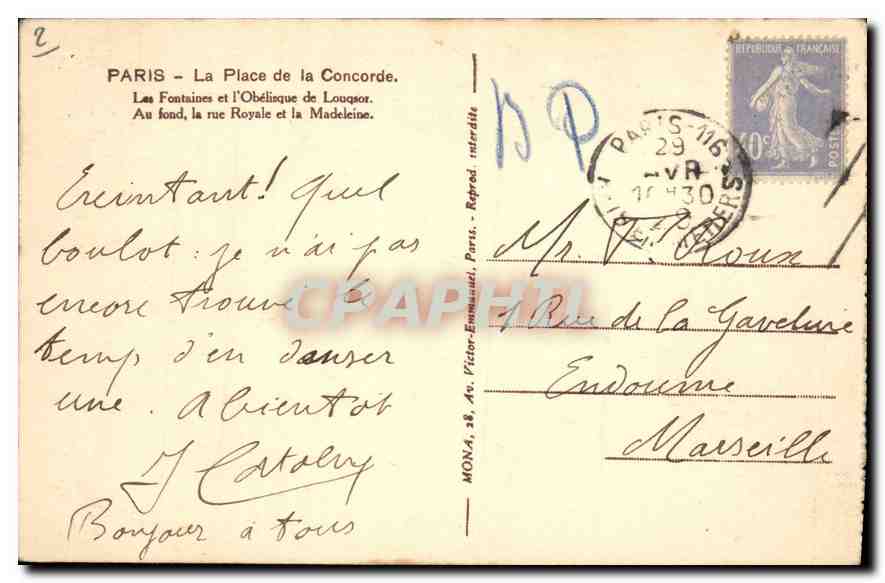 2
PARIS - La Place de la Concorde.
Les Fontaines et l'Obélisque de Louqsor.
Au fond, la rue Royale et la Madeleine.
Ereintant! Quel
boulot : je n'ai pas
encore trouvé le
temps d'en danser
une. A bientot
Bonjour à tous
MONA, 28, Av. Victor-Emmanuel, Paris. - Reprod. interdite
REPUBLIQUE FRANÇAISE
40c
POSTES
PARIS-116
29
AVR
30
Mr. F. Roux
1 Rue de la
Endoume
Marseille
CPAPHIL